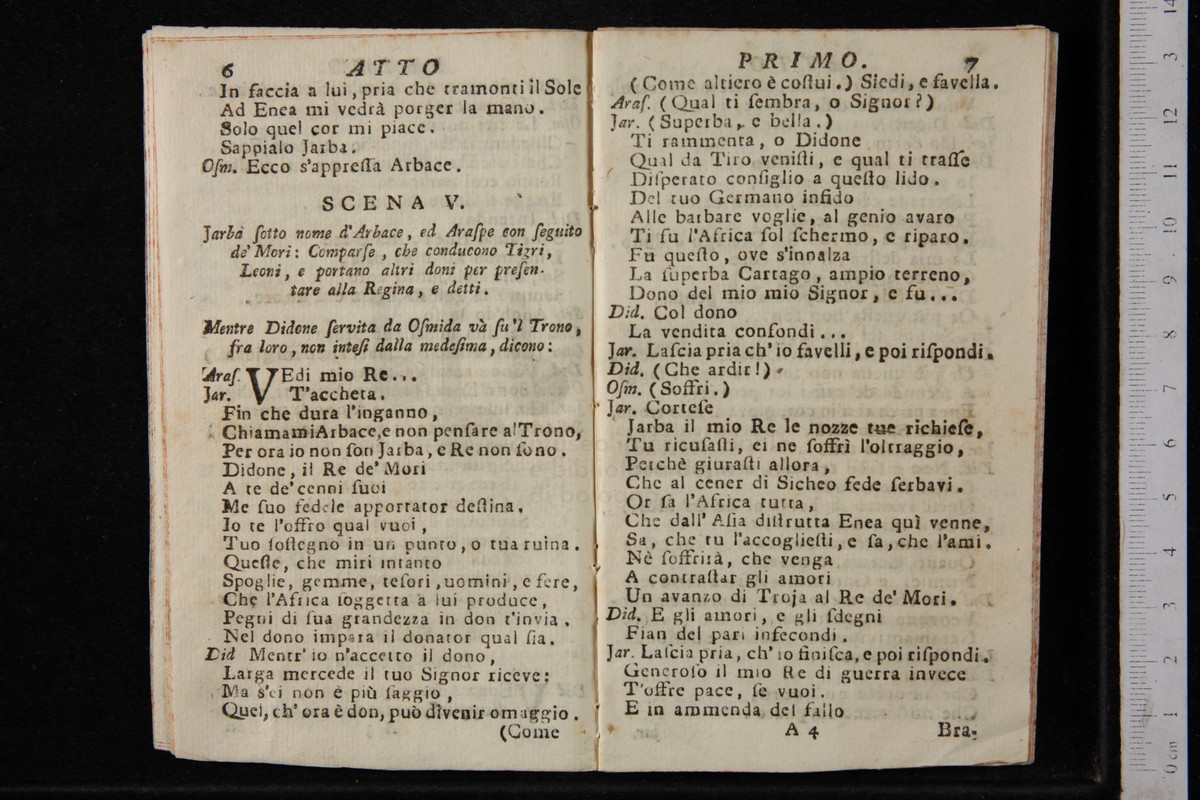 6 ATTO
In faccia a lui, pria che tramonti il Sole
Ad Enea mi vedrà porger la mano.
Solo quel cor mi piace.
Sappialo Jarba.
Oſm. Ecco s'appreſſa Arbace.
SCENA V.
Jarba ſotto nome d'Arbace, ed Araſpe con ſeguito
de' Mori: Comparſe, che conducono Tigri,
Leoni, e portano altri doni per preſen-
tare alla Regina, e detti.
Mentre Didone ſervita da Oſmida và ſu'l Trono,
fra loro, non inteſi dalla medeſima, dicono:
Araſ. VEdi mio Re...
Jar. T'accheta.
Fin che dura l'inganno,
ChiamamiArbace,e non penſare alTrono,
Per ora io non ſon Jarba, e Re non ſono.
Didone, il Re de' Mori
A te de' cenni ſuoi
Me ſuo fedele apportator deſtina.
Io te l'offro qual vuoi,
Tuo ſoſtegno in un punto, o tua ruina.
Queſte, che miri intanto
Spoglie, gemme, teſori, uomini, e fere,
Che l'Africa ſoggetta a lui produce,
Pegni di ſua grandezza in don t'invia.
Nel dono impara il donator qual ſia.
Did Mentr' io n'accetto il dono,
Larga mercede il tuo Signor riceve:
Ma s'ei non è più ſaggio,
Quel, ch' ora è don, può divenir omaggio.
(Come
PRIMO. 7
(Come altiero è coſtui.) Siedi, e favella.
Araſ. (Qual ti ſembra, o Signor?)
Jar. (Superba, e bella.)
Ti rammenta, o Didone
Qual da Tiro veniſti, e qual ti traſſe
Diſperato conſiglio a queſto lido.
Del tuo Germano infido
Alle barbare voglie, al genio avaro
Ti fu l'Africa ſol ſchermo, e riparo.
Fu queſto, ove s'innalza
La ſuperba Cartago, ampio terreno,
Dono del mio mio Signor, e fu...
Did. Col dono
La vendita confondi...
Jar. Laſcia pria ch' io favelli, e poi riſpondi.
Did. (Che ardir!)
Oſm. (Soffri.)
Jar. Corteſe
Jarba il mio Re le nozze tue richieſe,
Tu ricuſaſti, ei ne ſoffrì l'oltraggio,
Perchè giuraſti allora,
Che al cener di Sicheo fede ſerbavi.
Or ſa l'Africa tutta,
Che dall' Aſia diſtrutta Enea quì venne,
Sa, che tu l'accoglieſti, e ſa, che l'ami.
Nè ſoffrirà, che venga
A contraſtar gli amori
Un avanzo di Troja al Re de' Mori.
Did. E gli amori, e gli ſdegni
Fian del pari infecondi.
Jar. Laſcia pria, ch' io finiſca, e poi riſpondi.
Generoſo il mio Re di guerra invece
T'offre pace, ſe vuoi.
E in ammenda del fallo
A 4 Bra-